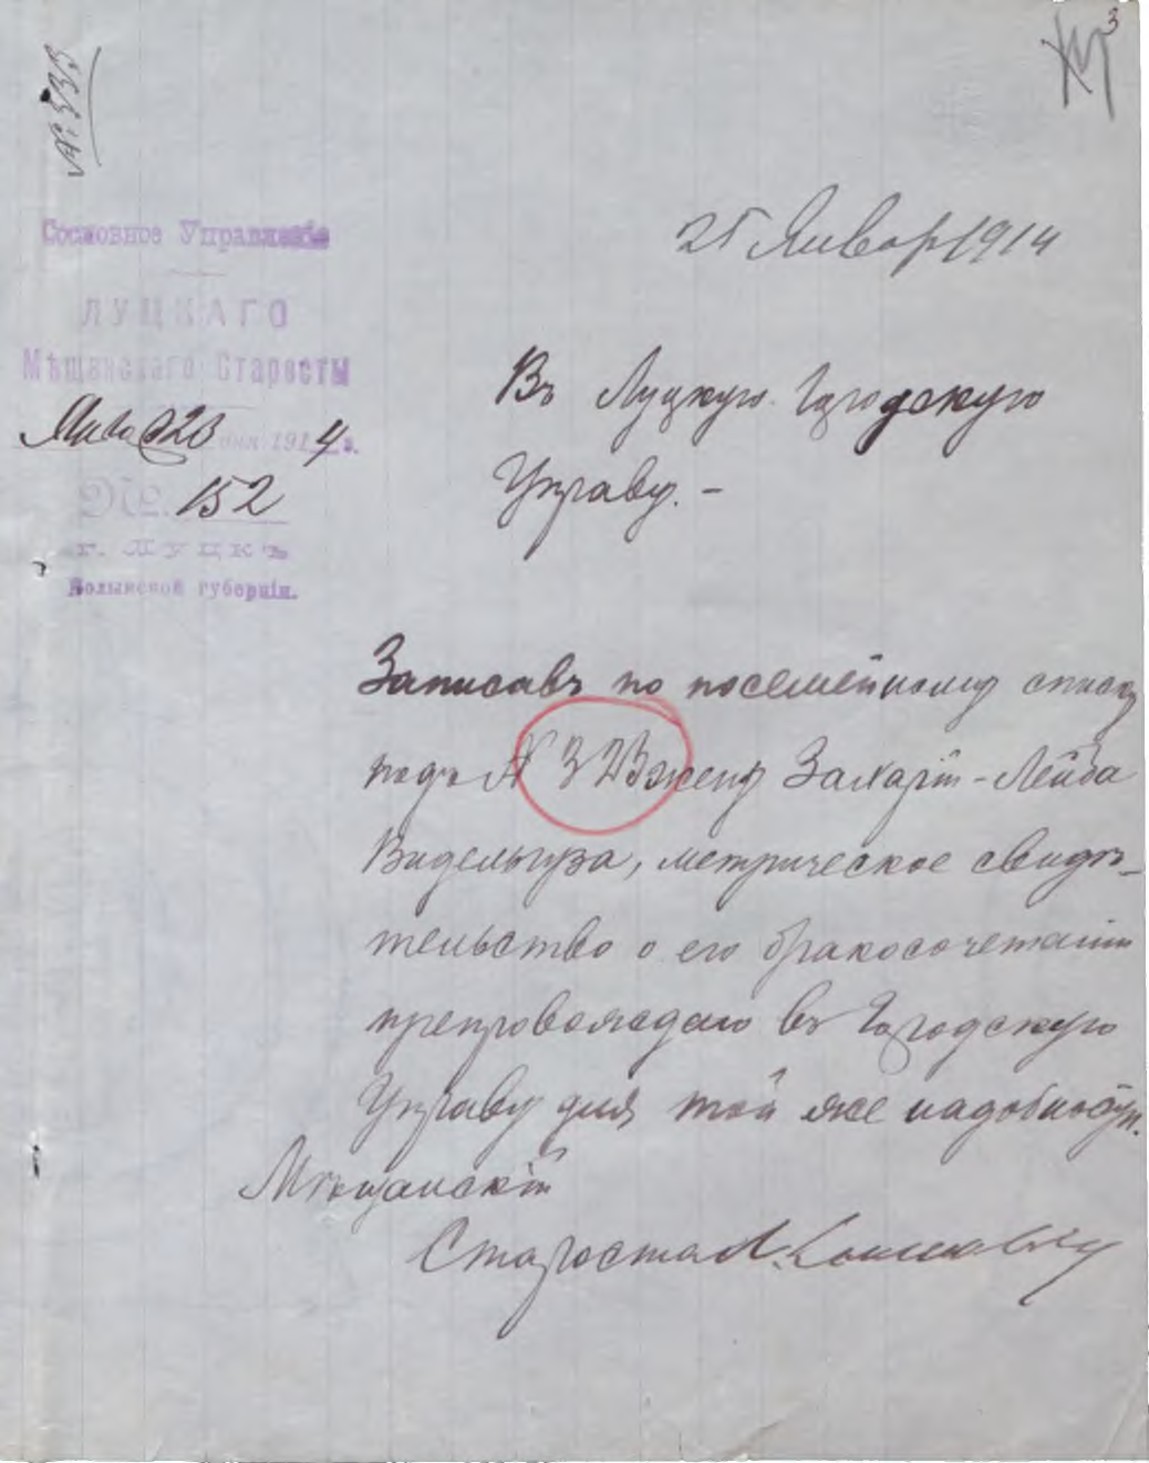 3
25 Январ 1914
Сословное Управленіе
ЛУЦКАГО
Мѣщанскаго Старосты
Янв 23 дня 1914 г.
№ 152
г. Луцкъ
Волынской губерніи.
Въ Луцкую Городскую
Управу. –
Записавъ по посемейному списку
подъ № 323 жену Захарія-Лейба
метрическое свидѣ-
тельство о его бракосочетаніи
препровождаю въ Городскую
Управу для той же надобности.
Мѣщанскій
Староста